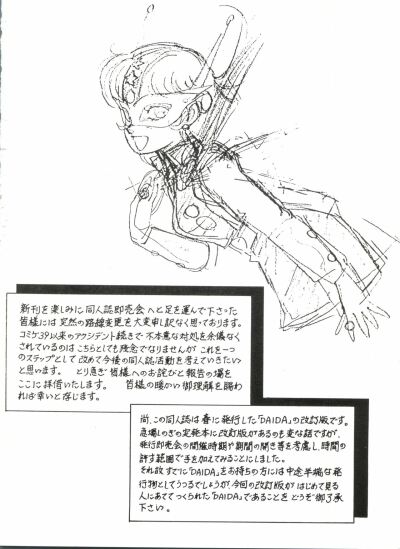 新刊を楽しみに同人誌即売会へと足を運んで下さった
皆様には突然の路線変更を大変申し訳なく思っております。
コミケ39以来のアクシデント続きで不本意な対処を余儀なく
されているのはこちらとしても残念でなりませんが これを一つ
のステップとして改めて今後の同人誌活動を考えていきたい
と思います。 とり急ぎ皆様へのお詫びと報告の場を
ここに拝借いたします。 皆様の暖かい御理解を賜わ
れば幸いと存じます。
尚、この同人誌は春に発行した「DAIDA」の改訂版です。
急場しのぎの定発本に改訂版があるのも変な話ですが、
発行即売会の開催時期や期間の開き等を考慮し、時間の
許す範囲で手を加えてみることにしました。
それ故すでに「DAIDA」をお持ちの方には中途半端な発
行物としてうつるでしょうが、今回の改訂版がはじめて見る
人にあててつくられた「DAIDA」であることをどうぞ御了承
下さい。